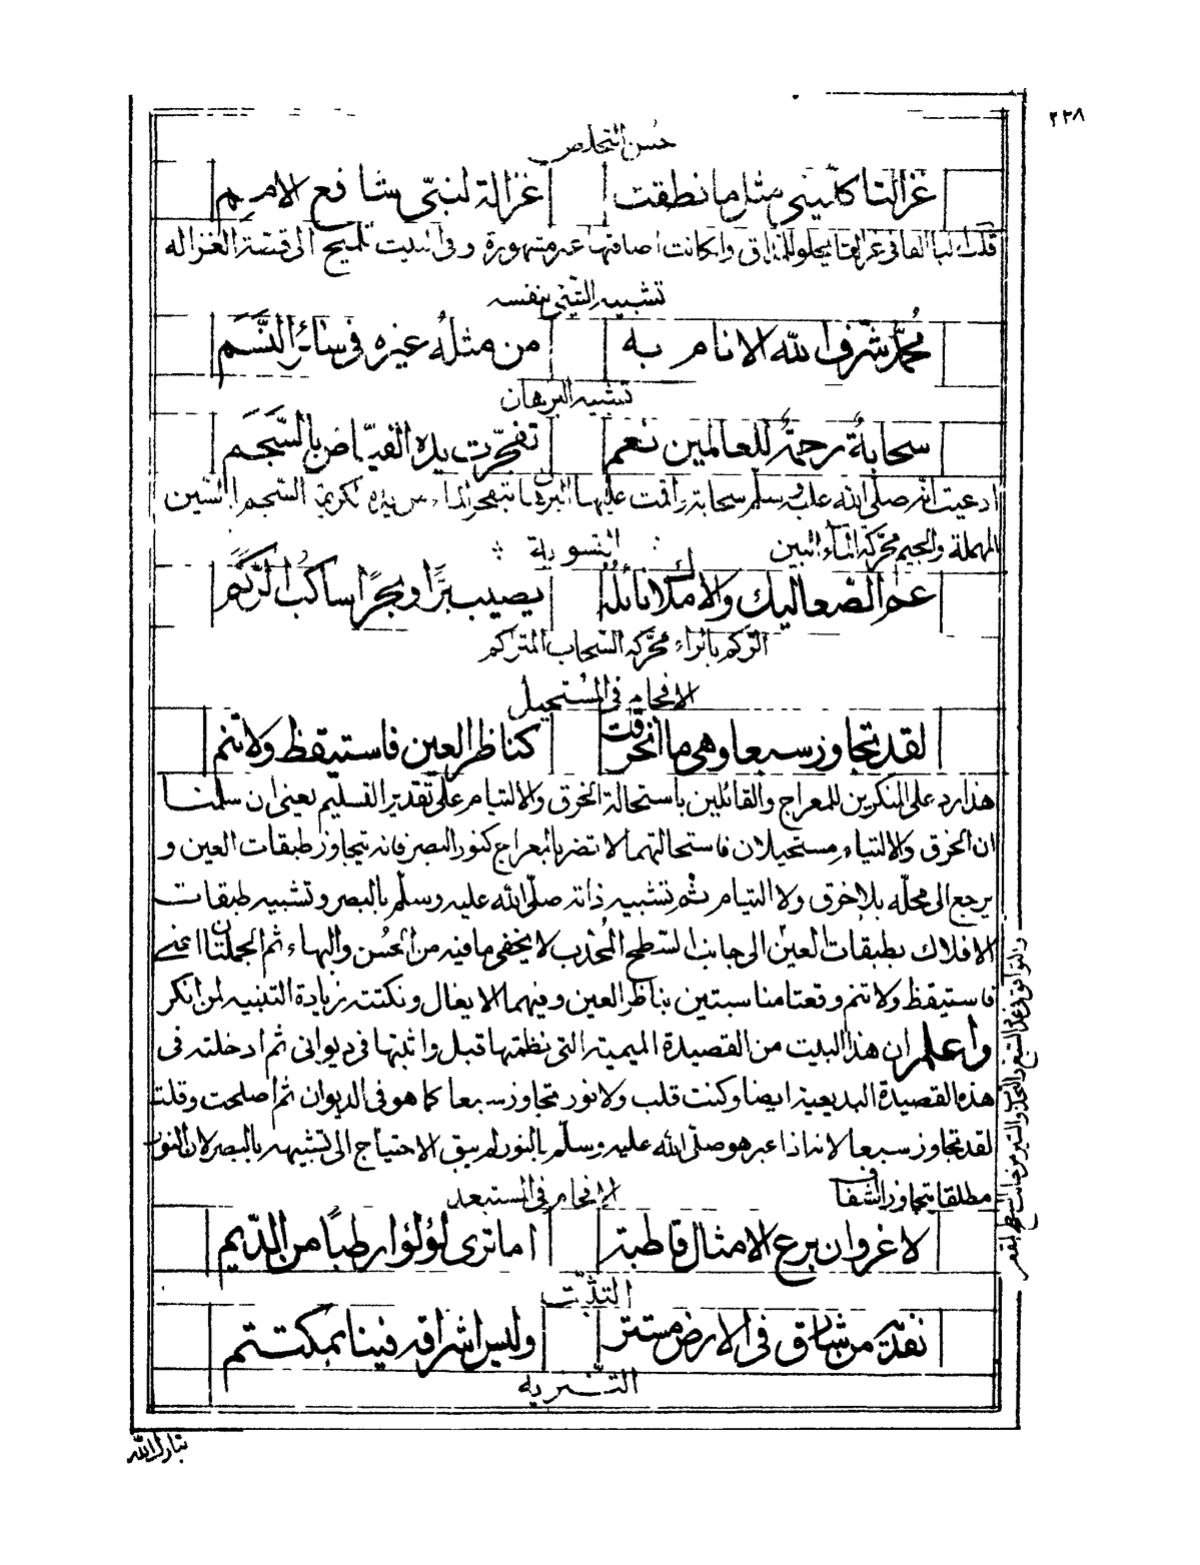 ٢٣٨
حُسن التخلص
غزالتا كلّميني مثل ما نطقت غزالة لنبيّ شافع الامم
قلت الفا في غزالتا يحلو للمذاق وان كانت اضافتها غير مشهورة وفي البيت تلميح الى قصة الغزاله
تشبيه الشيئ بنفسه
مُحمّد شرّف الله الانام به من مثلهُ غيره في سائر النَّسَم
تشبيه البرهان
سحابةٌ رحمةٌ للعالمين نعم تفجّرت يده الفيّاض بالسَّجَم
ادعيت انه صلّى الله عليه وسلم سحابة واقمت عليها البرهان بتفجر الماء من يده الكريمة السّجم بالسّين
المهملة والجيم محرّكة الماء البين التسوية
عم الصّعاليك والاملاك نائلهُ يصيب برًّا وبحرًا ساكبُ الرَّكَم
الرّكم بالراء محرّكة السّحاب المتراكم
الافحام في المستحيل
لقد تجاوز سبعا وهي ما انخرقت كناظر العين فاستيقظ ولا تنم
هذا رد على المنكرين للمعراج والقائلين باستحالة الخرق والالتيام على تقدير التسليم يعني ان سلّمنا
ان الخرق والالتيام مستحيلان فاستحالتهما لا تضر بالمعراج كنور البصر فانه يتجاوز طبقات العين و
يرجع الى محلّه بلا خرق ولا التيام ثم تشبيه ذاته صلّى الله عليه وسلّم بالبصر وتشبيه طبقات
الافلاك بطبقات العين الى جانب السّطح المُحدّب لا يخفى ما فيه من الحُسن والبهاء ثم الجملتان اعني
فاستيقظ ولا تنم وقعتا مناسبتين بناظر العين وفيهما الايغال ونكتته زيادة التنبيه لمن انكر
واعلم ان هذا البيت من القصيدة الميمية التي نظمتها قبل واثبتها في ديواني ثم ادخلته في
هذه القصيدة البديعية ايضا وكنت قلت ولا نور متجاوز سبعا كما هو في الديوان ثم اصلحت وقلت
لقد تجاوز سبعا لانه اذا عبر هو صلّى الله عليه وسلّم بالنور لم يبق الاحتياج الى تشبيهه بالبصر لان النور
مطلقا يتجاوز الشفاف الافحام في المستبعد
لا غروان برع الامثال قاطبة اما ترى لؤلؤا رطبًا من الدّيم
التذبّت
نفديه من شارق في الارض مستتر وليس اشراقه فينا بمكتتم
التّنزيه
تبارك الله